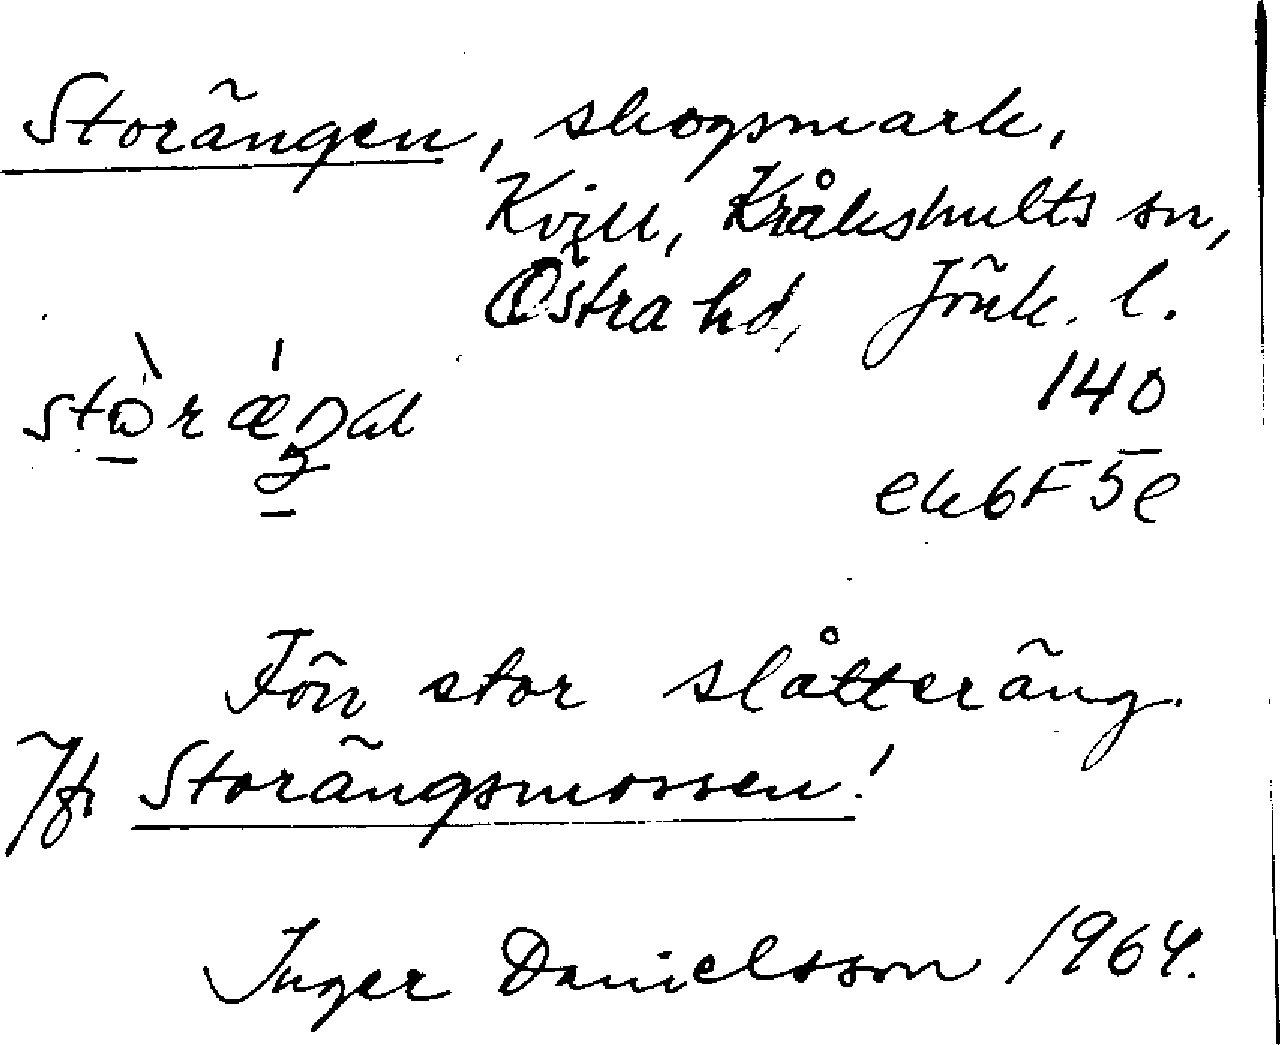 Storängen, skogsmark,
Kvill, Kråkshults sn,
Östra hd, Jönk. l.
140
ek6F5e
Förr stor slåtteräng.
Jfr Storängsmossen!
Inger Danielsson 1964.